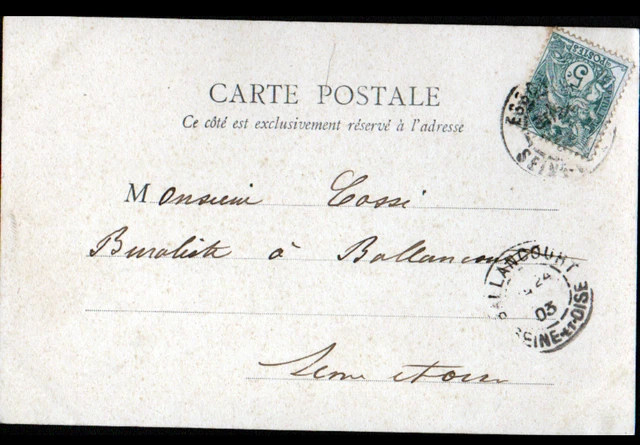 CARTE POSTALE
Ce côté est exclusivement réservé à l'adresse
POSTES
5
SEINE
Monsieur Cossé
Buraliste à Ballancourt
BALLANCOURT
24
03
SEINE-ET-OISE
Seine et oise